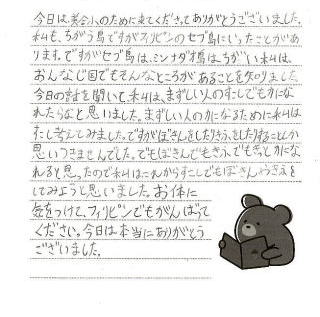 今日は、美合小のために来てくださってありがとうございました。
私も、ちがう島ですがフィリピンのセブ島にいったことがあ
ります。ですがセブ島は、ミンダナオ島は、ちがい私は、
おんなじ国でもそんなところがあることを知りました。
今日の話を聞いて、私は、まずしい人のすこしでも力にな
れたらなと思いました。まずしい人の力になるために私は
すこし考えてみました。ですがぼきんをしたりきふをしたりすることしか
思いつきませんでした。でもぼきんでもきふでもきっと力にな
れると思ったので私はこれからすこしでもぼきんやきふを
してみようと思いました。お体に
気をつけて、フィリピンでもがんばって
ください。今日は本当にありがとう
ございました。